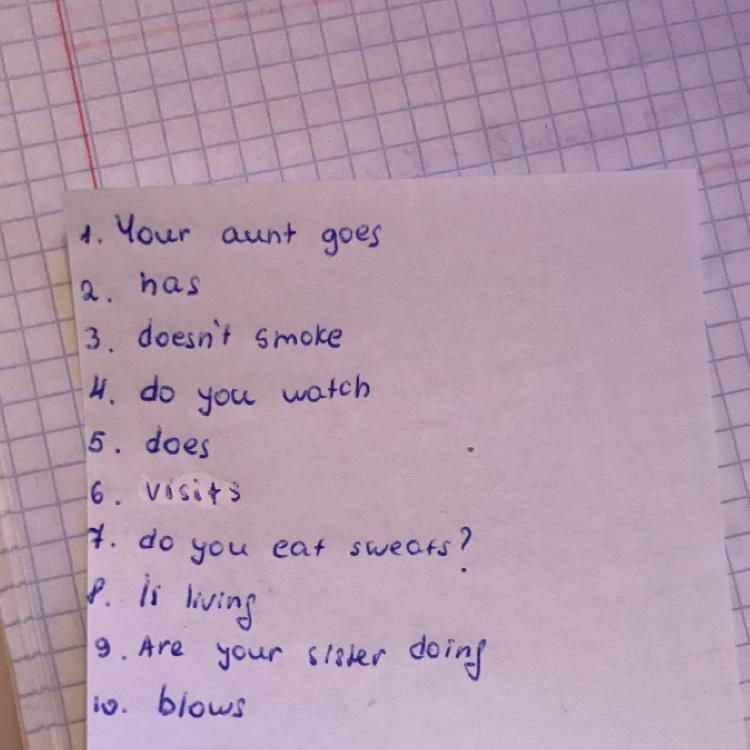 1. Your aunt goes
2. has
3. doesn't smoke
4. do you watch
5. does
6. visits
7. do you eat sweats?
8. is living
9. Are your sister doing
10. blows